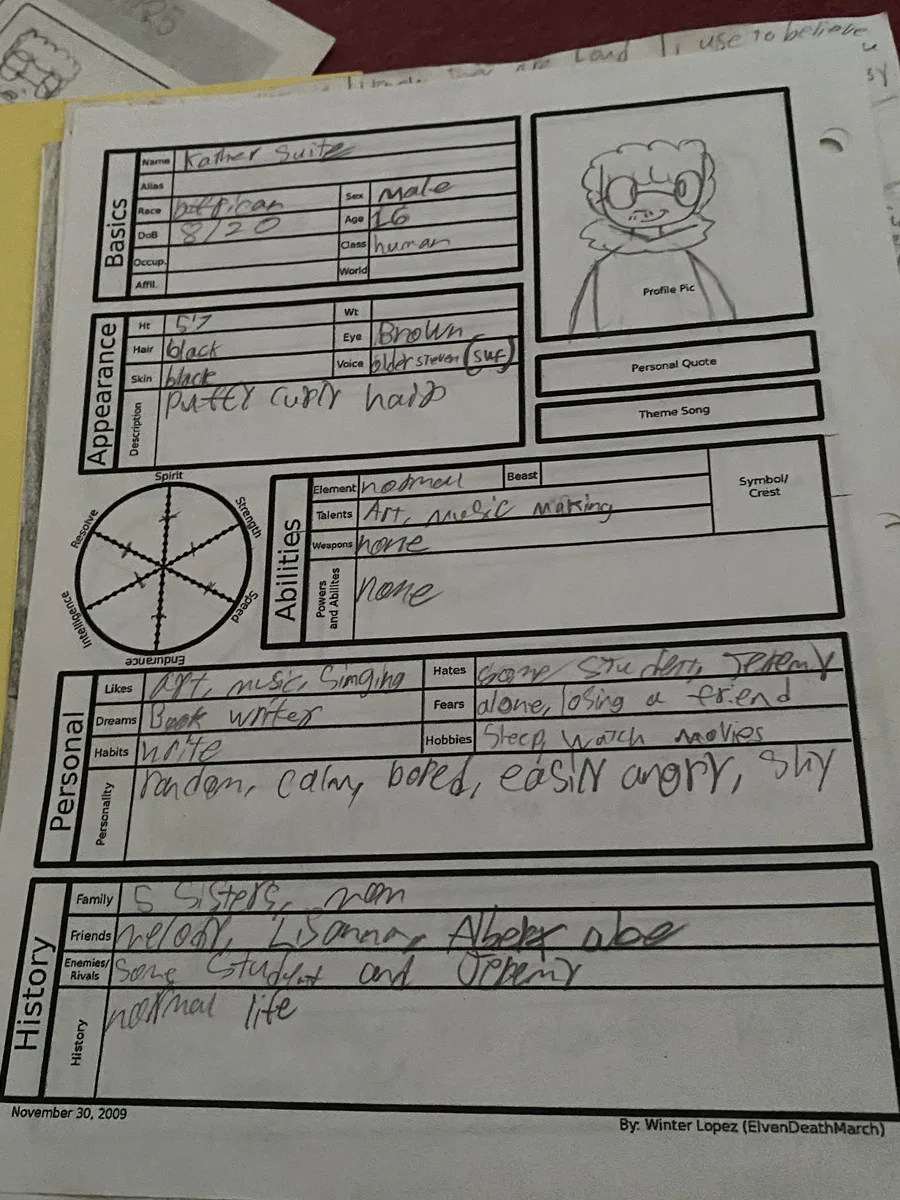 I use to believe
Basics
Name Kather Suite
Alias
Race
Sex Male
DoB 8/20
Age 16
Class human
Occup.
World
Affil.
Profile Pic
Appearance
Ht 5'7
Wt
Hair black
Eye Brown
Skin black
Voice older steven (SUF)
Description puffy curly hair
Personal Quote
Theme Song
Spirit
Strength
Speed
Endurance
Intelligence
Resolve
Abilities
Element normal
Beast
Symbol/
Crest
Talents Art, music making
Weapons none
Powers
and Abilites none
Personal
Likes art, music, singing
Hates some student, Jeremy
Dreams Book writer
Fears alone, losing a friend
Habits write
Hobbies Sleep, watch movies
Personality random, calm, bored, easily angry, shy
History
Family 5 sisters, mom
Friends melody, Lisanna, Albert
Enemies/
Rivals some student and Jeremy
History normal life
November 30, 2009
By: Winter Lopez (ElvenDeathMarch)